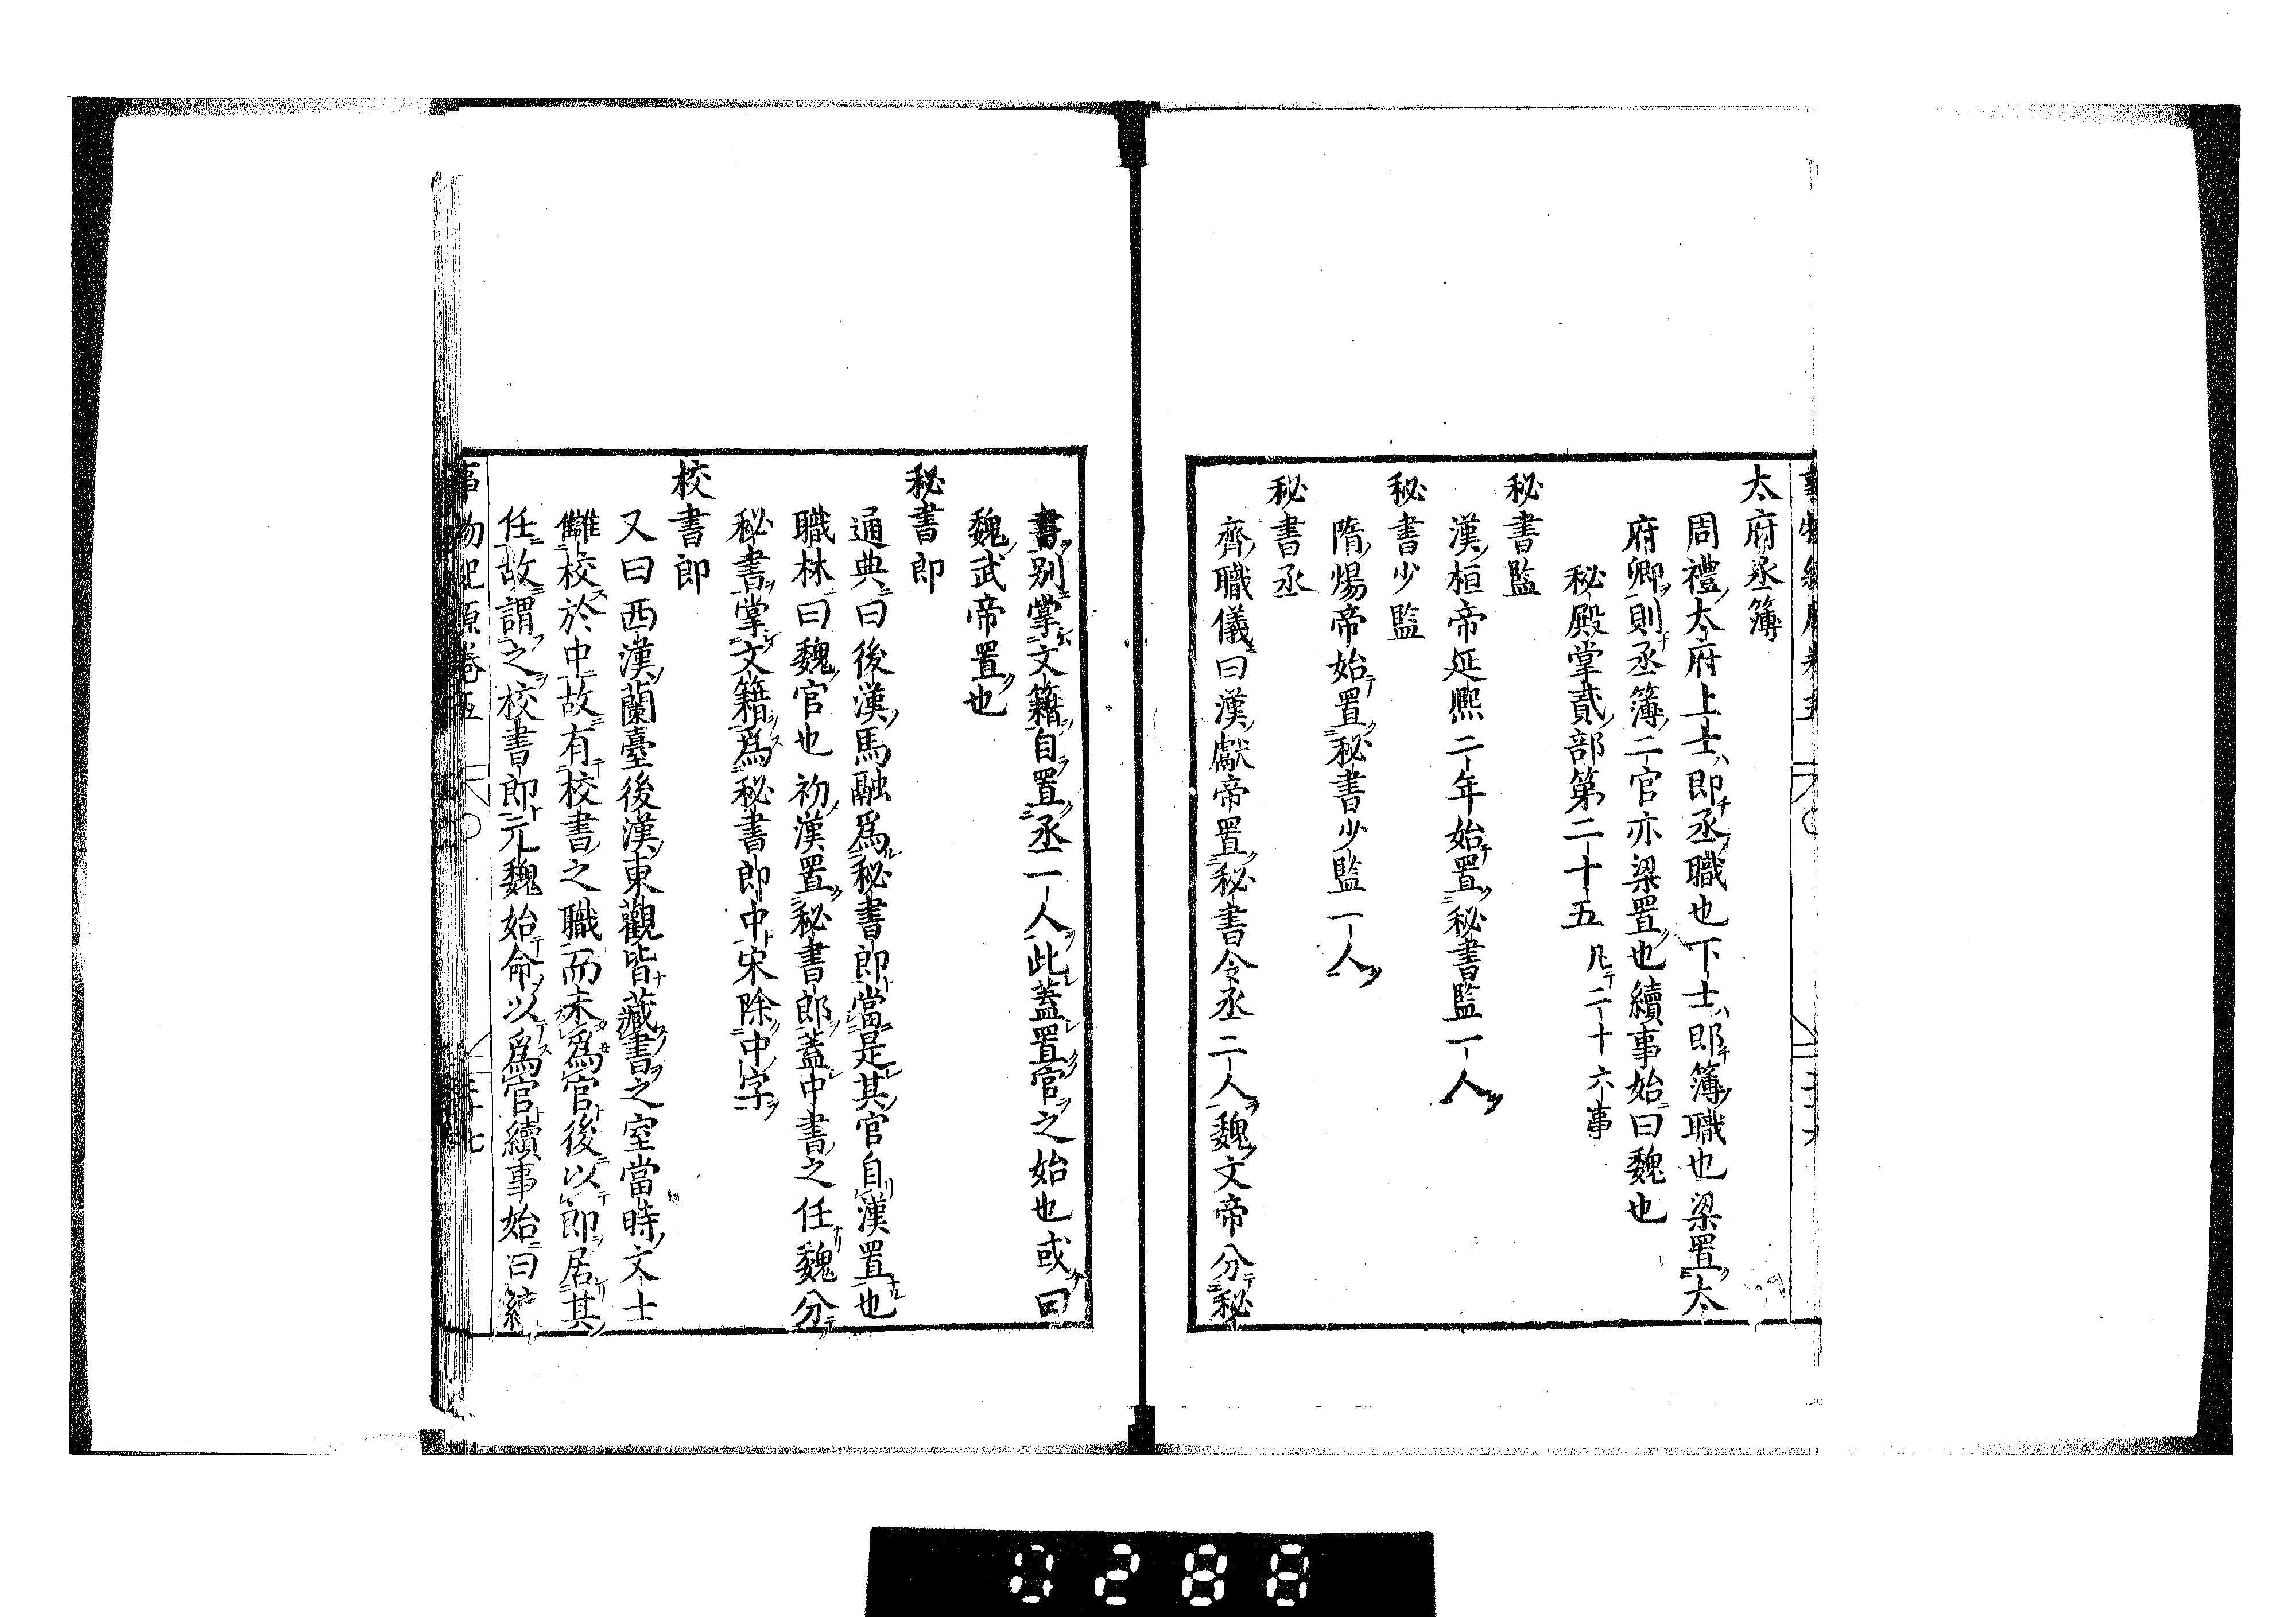 太府丞簿
周禮太府上士即丞職也下士即簿職也梁置太
府卿則丞簿二官亦梁置也續事始曰魏也
秘殿掌貳部第二十五 凡二十六事
秘書監
漢桓帝延熈二年始置秘書監一人
秘書少監
隋煬帝始置秘書少監一人
秘書丞
齊職儀曰漢獻帝置秘書令丞二人魏文帝分秘
書别掌文籍自置丞一人此蓋置官之始也或曰
魏武帝置也
秘書郎
通典曰後漢馬融爲秘書郎當是其官自漢置也
職林曰魏官也初漢置秘書郎蓋中書之任魏分
秘書掌文籍爲秘書郎中宋除中字
校書郎
又曰西漢蘭臺後漢東觀皆藏書之室當時文士
讎校於中故有校書之職而未爲官後以郎居其
任故謂之校書郎元魏始命以爲官續事始曰
事物紀原卷五
三十七
0288